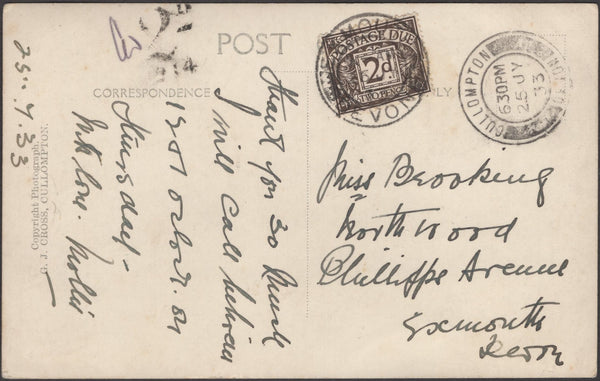 POST
CORRESPONDENCE
25.. 7.33
Copyright Photograph.
G. J. CROSS, CULLOMPTON.
for so much
I will call between
1 & on
Thursday -
With love. Mollie
POSTAGE DUE
2d
TWO PENCE
CULLOMPTON
630PM
25 JY
33
DEVON
Miss Brooking
Northwood
Phillipps Avenue
Exmouth
Devon